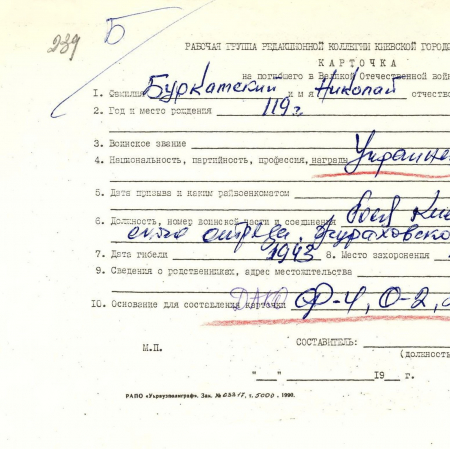 239 Б
РАБОЧАЯ ГРУППА РЕДАКЦИОННОЙ КОЛЛЕГИИ КИЕВСКОЙ ГОРОДС
КАРТОЧКА
на погибшего в Великой Отечественной вой
1. Фамилия Буркатский имя Николай отчество
2. Год и место рождения 119г.
3. Воинское звание
4. Национальность, партийность, профессия, награды Украине
5. Дата призыва и каким райвоенкоматом
6. Должность, номер воинской части и соединения боец
отряда,
7. Дата гибели 1943 8. Место захоронения
9. Сведения о родственниках, адрес местожительства
10. Основание для составления карточки ДАКО Ф-4, О-2,
М.П. СОСТАВИТЕЛЬ:
(должность
"___" 19 г.
РАПО «Укрвузполиграф». Зак. № т. 5000. 1990.